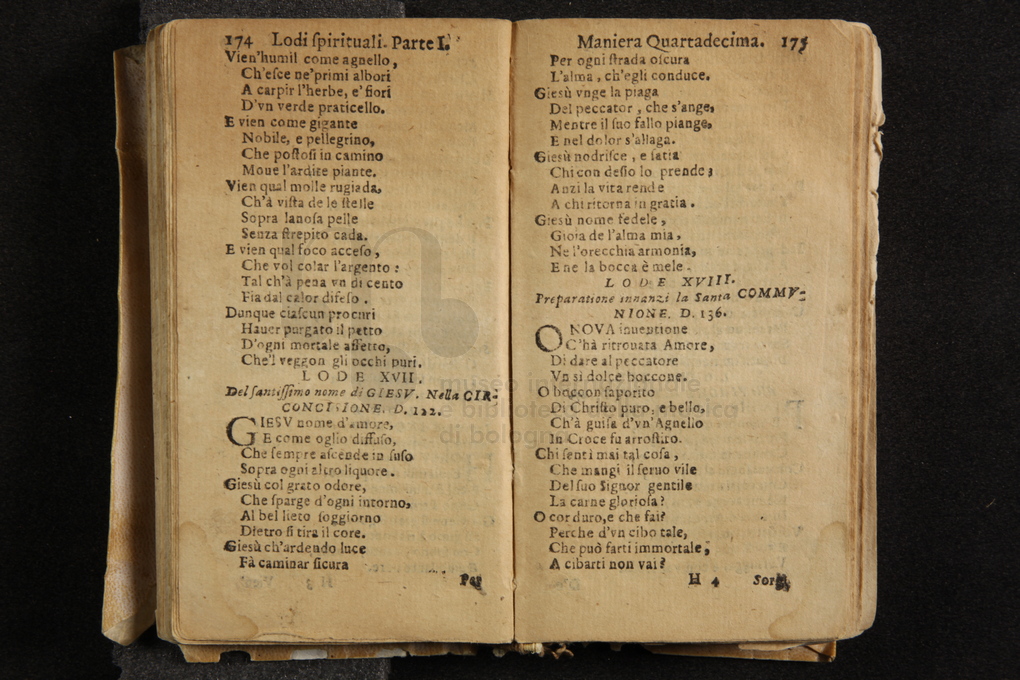 174 Lodi ſpirituali. Parte I.
Vien'humil come agnello,
Ch'eſce ne'primi albori
A carpir l'herbe, e' fiori
D'vn verde praticello.
E vien come gigante
Nobile, e pellegrino,
Che poſtoſi in camino
Moue l'ardite piante.
Vien qual molle rugiada,
Ch'à viſta de le ſtelle
Sopra lanoſa pelle
Senza ſtrepito cada.
E vien qual foco acceſo,
Che vol colar l'argento:
Tal ch'à pena vn di cento
Fia dal calor difeſo.
Dunque ciaſcun procuri
Hauer purgato il petto
D'ogni mortale affetto,
Che'l veggon gli occhi puri.
LODE XVII.
Del ſantiſſimo nome di GIESV. Nella CIR-
CONCISIONE. D. 122.
GIESV nome d'amore,
E come oglio diffuſo,
Che ſempre aſcende in ſuſo
Sopra ogni altro liquore.
Giesù col grato odore,
Che ſparge d'ogni intorno,
Al bel lieto ſoggiorno
Dietro ſi tira il core.
Giesù ch'ardendo luce
Fà caminar ſicura
Per
Maniera Quartadecima. 175
Per ogni ſtrada oſcura
L'alma, ch'egli conduce.
Giesù vnge la piaga
Del peccator, che s'ange,
Mentre il ſuo fallo piange,
E nel dolor s'allaga.
Giesù nodriſce, e ſatia
Chi con deſio lo prende;
Anzi la vita rende
A chi ritorna in gratia.
Giesù nome fedele,
Gioia de l'alma mia,
Ne l'orecchia armonia,
E ne la bocca è mele.
LODE XVIII.
Preparatione innanzi la Santa COMMV-
NIONE. D. 136.
O NOVA inuentione
C'hà ritrouata Amore,
Di dare al peccatore
Vn sì dolce boccone.
O boccon ſaporito
Di Chriſto puro, e bello,
Ch'à guiſa d'vn'Agnello
In Croce fu arroſtito.
Chi ſentì mai tal coſa,
Che mangi il ſeruo vile
Del ſuo Signor gentile
La carne glorioſa?
O cor duro, e che fai?
Perche d'vn cibo tale,
Che può farti immortale,
A cibarti non vai?
H 4